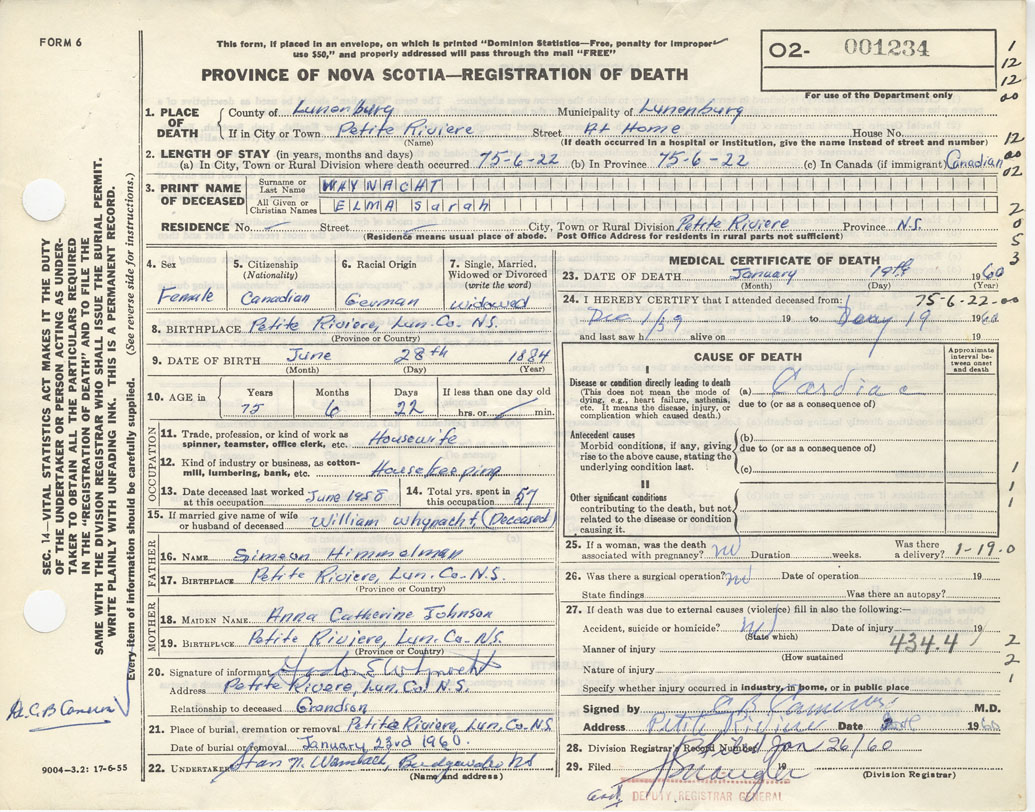 FORM 6
This form, if placed in an envelope, on which is printed "Dominion Statistics—Free, penalty for improper
use $50," and properly addressed will pass through the mail "FREE"
O2- 001234
For use of the Department only
PROVINCE OF NOVA SCOTIA—REGISTRATION OF DEATH
1. PLACE OF DEATH
County of Lunenburg Municipality of Lunenburg
If in City or Town Petite Riviere Street At Home House No.
(Name) (If death occurred in a hospital or institution, give the name instead of street and number)
2. LENGTH OF STAY (in years, months and days)
(a) In City, Town or Rural Division where death occurred 75-6-22 (b) In Province 75-6-22 (c) In Canada (if immigrant) Canadian
3. PRINT NAME OF DECEASED
Surname or Last Name WHYNACHT
All Given or Christian Names ELMA Sarah
RESIDENCE No. Street City, Town or Rural Division Petite Riviere Province N.S.
(Residence means usual place of abode. Post Office Address for residents in rural parts not sufficient)
4. Sex Female
5. Citizenship (Nationality) Canadian
6. Racial Origin German
7. Single, Married, Widowed or Divorced (write the word) Widowed
8. BIRTHPLACE Petite Riviere, Lun. Co. N.S.
(Province or Country)
9. DATE OF BIRTH June 28th 1884
(Month) (Day) (Year)
10. AGE in Years 75 Months 6 Days 22 If less than one day old hrs. or min.
OCCUPATION
11. Trade, profession, or kind of work as spinner, teamster, office clerk, etc. Housewife
12. Kind of industry or business, as cotton-mill, lumbering, bank, etc. Housekeeping
13. Date deceased last worked at this occupation June 1958 14. Total yrs. spent in this occupation 57
15. If married give name of wife or husband of deceased William Whynacht (Deceased)
FATHER
16. NAME Simeon Himmelman
17. BIRTHPLACE Petite Riviere, Lun. Co. N.S.
(Province or Country)
MOTHER
18. MAIDEN NAME Anna Catherine Johnson
19. BIRTHPLACE Petite Riviere, Lun. Co. N.S.
(Province or Country)
20. Signature of informant
Address Petite Rivere, Lun. Co. N.S.
Relationship to deceased Grandson
21. Place of burial, cremation or removal Petite Riviere, Lun. Co. N.S
Date of burial or removal January 23rd 1960.
22. UNDERTAKER
(Name and address)
9004-3.2: 17-6-55
MEDICAL CERTIFICATE OF DEATH
23. DATE OF DEATH January 19th 1960
(Month) (Day) (Year)
75-6-22-00
24. I HEREBY CERTIFY that I attended deceased from:
Dec 1/59 19 to 19 1960
and last saw h alive on 19
CAUSE OF DEATH
Approximate interval between onset and death
I
Disease or condition directly leading to death
(This does not mean the mode of dying, e.g., heart failure, asthenia, etc. It means the disease, injury, or complication which caused death.)
(a) Cardiac
due to (or as a consequence of)
Antecedent causes
Morbid conditions, if any, giving rise to the above cause, stating the underlying condition last.
(b)
due to (or as a consequence of)
(c)
II
Other significant conditions
contributing to the death, but not related to the disease or condition causing it.
25. If a woman, was the death associated with pregnancy? Duration weeks. Was there a delivery? 1-19.0
26. Was there a surgical operation? Date of operation 19
State findings Was there an autopsy?
27. If death was due to external causes (violence) fill in also the following:—
Accident, suicide or homicide? Date of injury 19
(State which)
Manner of injury 434.4
(How sustained
Nature of injury
Specify whether injury occurred in industry, in home, or in public place
Signed by C B Cameron M.D.
Address Petite Riviere Date 1960
28. Division Registrar's Record Number
Filed Jan 26/60
29. Filed 19
(Division Registrar)
DEPUTY REGISTRAR GENERAL
SEC. 14—VITAL STATISTICS ACT MAKES IT THE DUTY
OF THE UNDERTAKER OR PERSON ACTING AS UNDER-
TAKER TO OBTAIN ALL THE PARTICULARS REQUIRED
IN THE "REGISTRATION OF DEATH" AND TO FILE THE
SAME WITH THE DIVISION REGISTRAR WHO SHALL ISSUE THE BURIAL PERMIT.
WRITE PLAINLY WITH UNFADING INK. THIS IS A PERMANENT RECORD.
Every item of information should be carefully supplied. (See reverse side for instructions.)
1
12
12
00
12
00
02
2
0
5
3
1
1
1
2
2
1